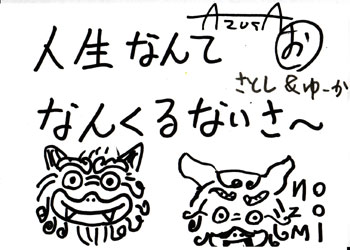 AzusA
お
人生なんて
さとし&ゆーか
なんくるないさ〜
NOZOMI